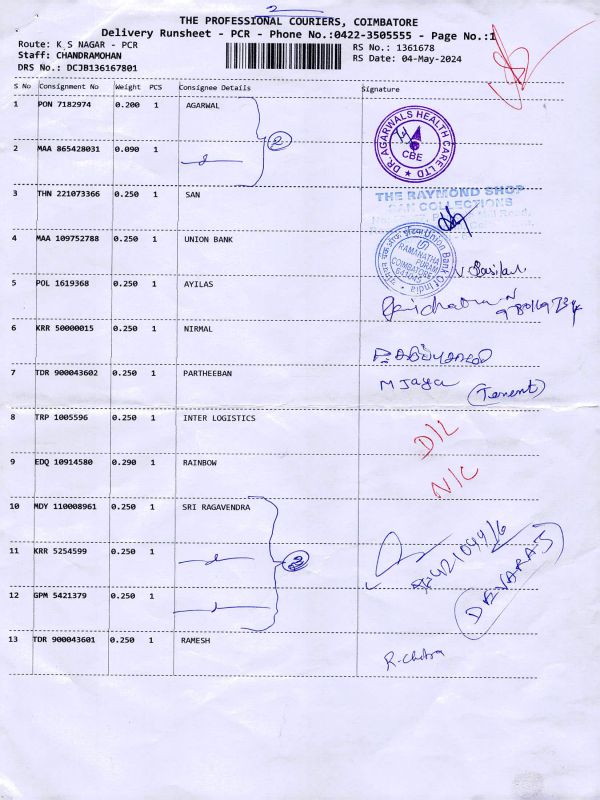 2
THE PROFESSIONAL COURIERS, COIMBATORE
Delivery Runsheet - PCR - Phone No.:0422-3505555 - Page No.:1
Route: K S NAGAR - PCR
RS No.: 1361678
Staff: CHANDRAMOHAN
RS Date: 04-May-2024
DRS No.: DCJB136167801
S No Consignment No Weight PCS Consignee Details Signature
1 PON 7182974 0.200 1 AGARWAL
DR. AGARWALS HEALTH CARE LTD
CBE
2
2 MAA 865428031 0.090 1
3 THN 221073366 0.250 1 SAN
THE RAYMOND SHOP
SAN COLLECTIONS
4 MAA 109752788 0.250 1 UNION BANK
Union Bank Of India
RAMANATHA
PURAM
COIMBATORE
5 POL 1619368 0.250 1 AYILAS
6 KRR 50000015 0.250 1 NIRMAL
7 TDR 900043602 0.250 1 PARTHEEBAN
M Jaya (Tenent)
8 TRP 1005596 0.250 1 INTER LOGISTICS
D/L
9 EDQ 10914580 0.290 1 RAINBOW
N/C
10 MDY 110008961 0.250 1 SRI RAGAVENDRA
11 KRR 5254599 0.250 1
3
DEVARAJ
12 GPM 5421379 0.250 1
13 TDR 900043601 0.250 1 RAMESH
R-Chitra